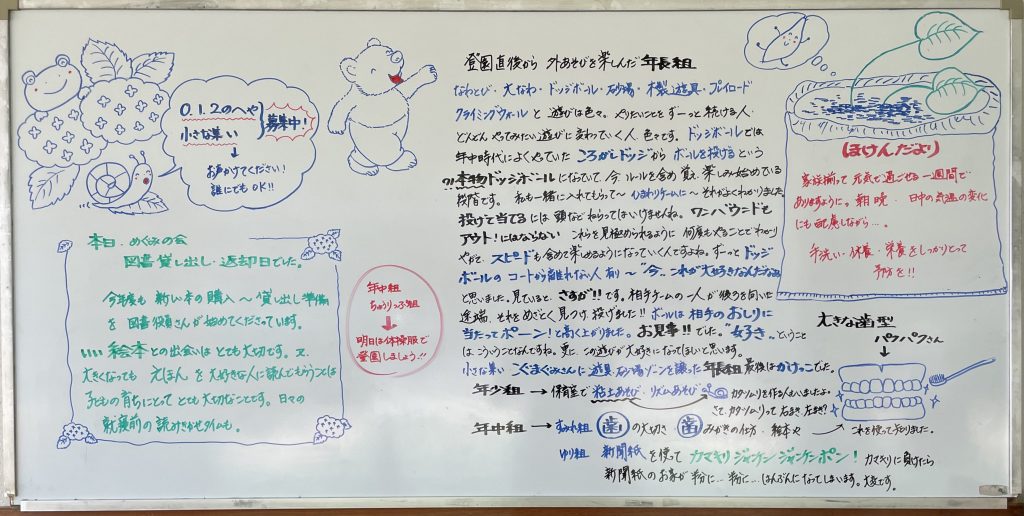 0.1.2のへや
小さな集い
募集中!
お声かけてください!
誰にでもOK!!
本日・めぐみの会
図書貸し出し・返却日でした。
今年度も 新しい本の購入〜貸し出し準備
を 図書役員さんが始めてくださっています。
いい絵本との出会いはとても大切です。又、
大きくなっても えほんを大好きな人に読んでもらうことは
子どもの育ちにとってとても大切なことです。日々の
就寝前の読みきかせタイムも。
年中組
ちゅうりっぷ組
明日は体操服で
登園しましょう!!
登園直後から 外あそびを楽しんだ年長組
なわとび・大なわ・ドッジボール・砂場・木製遊具・プレイロード
クライミングウォールと遊びは色々。やりたいことをずーっと続ける人・
どんどんやってみたい遊びに変わっていく人 色々です。ドッジボールでは
年中時代によくやっていた ころがしドッジから ボールを投げるという
本物ドッジボールになっていて、今 ルールを含め覚え、楽しみ始めている
段階です。私も一緒に入れてもらって〜ひまわりチームに〜それがよくわかりました
投げて当てるには 頭などねらってはいけませんね。ワンバウンドも
アウト!にはならない これらを見極められるように 何度もやることでわかり
やがて、スピードも含めて楽しめるようになっていくんですよね。ずーっとドッジ
ボールのコートから離れない人有り〜“今、これが大好きなんだなぁ”
と思いました。見ていると、さすが!!です。相手チームの一人が後ろを向いた
途端、それをめざとく見つけ 投げました!! ボールは相手のおしりに
当たってポーン!と高く上がりました。お見事!!でした。“好き”ということ
はこういうことなんですね。更に、この遊びが大好きになってほしいと思います。
小さな集い こぐまぐみさんに 遊具、砂場ゾーンを譲った 年長組 最後はかけっこでした。
年少組 → 保育室で 粘土あそび・リズムあそび カタツムリを作る人もいましたよ
さて、カタツムリって 右まき 左まき?
年中組 → すみれ組 歯の大切さ 歯みがきの仕方・絵本や → これを使って知りました。
ゆり組 新聞紙を使って カマキリジャンケン ジャンケンポン! カマキリに負けたら
新聞紙のお家が 半分に… 半分に…はんぶんになってしまいます。大変です。
ほけんだより
家族揃って 元気で過ごせる一週間で
ありますように。朝晩・日中の気温の変化
にも配慮しながら…。
手洗い・休養・栄養をしっかりとって
予防を!!
大きな歯型
パクパクさん